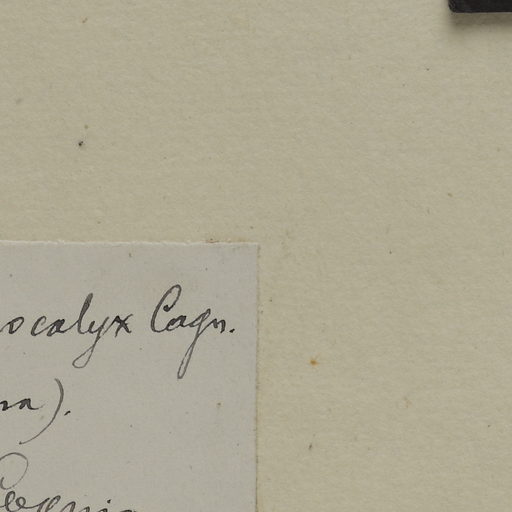 ocalyx Cagn.
na).